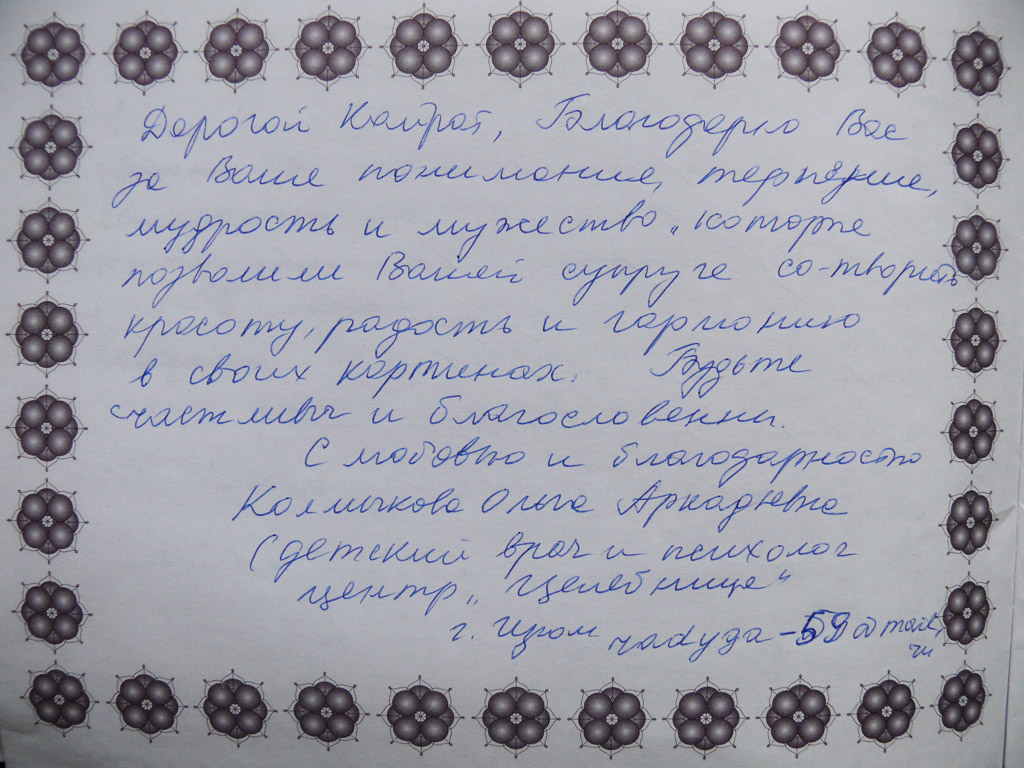 Дорогой Кайрат, Благодарю Вас
за Ваше понимание, терпение,
мудрость и мужество, которые
позволили Вашей супруге со-творить
красоту, радость и гармонию
в своих картинах. Будьте
счастливы и благословенны.
С любовью и благодарностью
Колмычкова Ольга Аркадьевна
(детский врач и психолог
центр „Целебница“
г.